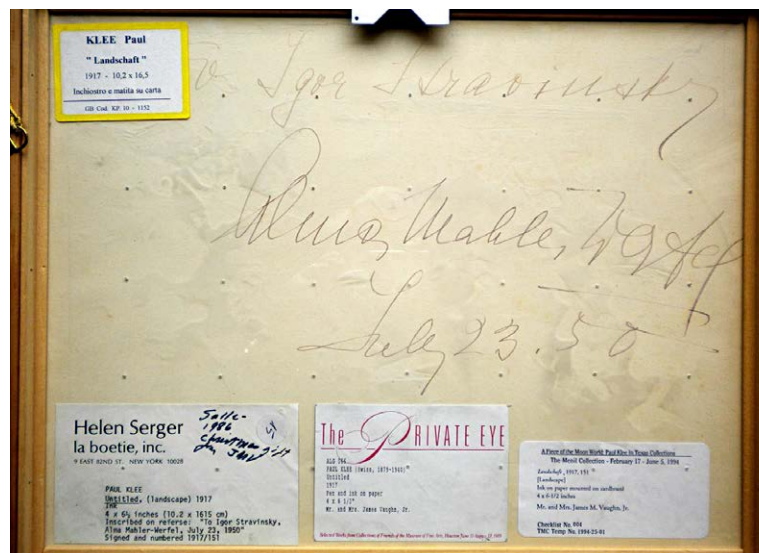 KLEE Paul
" Landschaft "
1917 - 10,2 x 16,5
Inchiostro e matita su carta
GB Cod. KP. 10 - 1152
To Igor Stravinsky
Alma Mahler Werfel
July 23. 50
Helen Serger
la boetie, inc.
9 EAST 82ND ST. NEW YORK 10028
Sallc-
1986
Christmas gift
JMV
PAUL KLEE
Untitled, (landscape) 1917
INK
4 x 6½ inches (10.2 x 1615 cm)
Inscribed on referse: "To Igor Stravinsky,
Alma Mahler-Werfel, July 23, 1950"
Signed and numbered 1917/151
The PRIVATE EYE
PAUL KLEE (Swiss, 1879-1940)
Untitled
1917
Pen and ink on paper
4 x 6 1/2"
Mr. and Mrs. James Vaughn, Jr.
Selected Works from Collections of Friends of the Museum of Fine Arts, Houston
A Piece of the Moon World: Paul Klee in Texas Collections
The Menil Collection - February 17 - June 5, 1994
Landschaft, 1917, 151
[Landscape]
Ink on paper mounted on cardboard
4 x 6-1/2 inches
Mr. and Mrs. James M. Vaughn, Jr.
Checklist No. 004
TMC Temp No. 1994-25-01